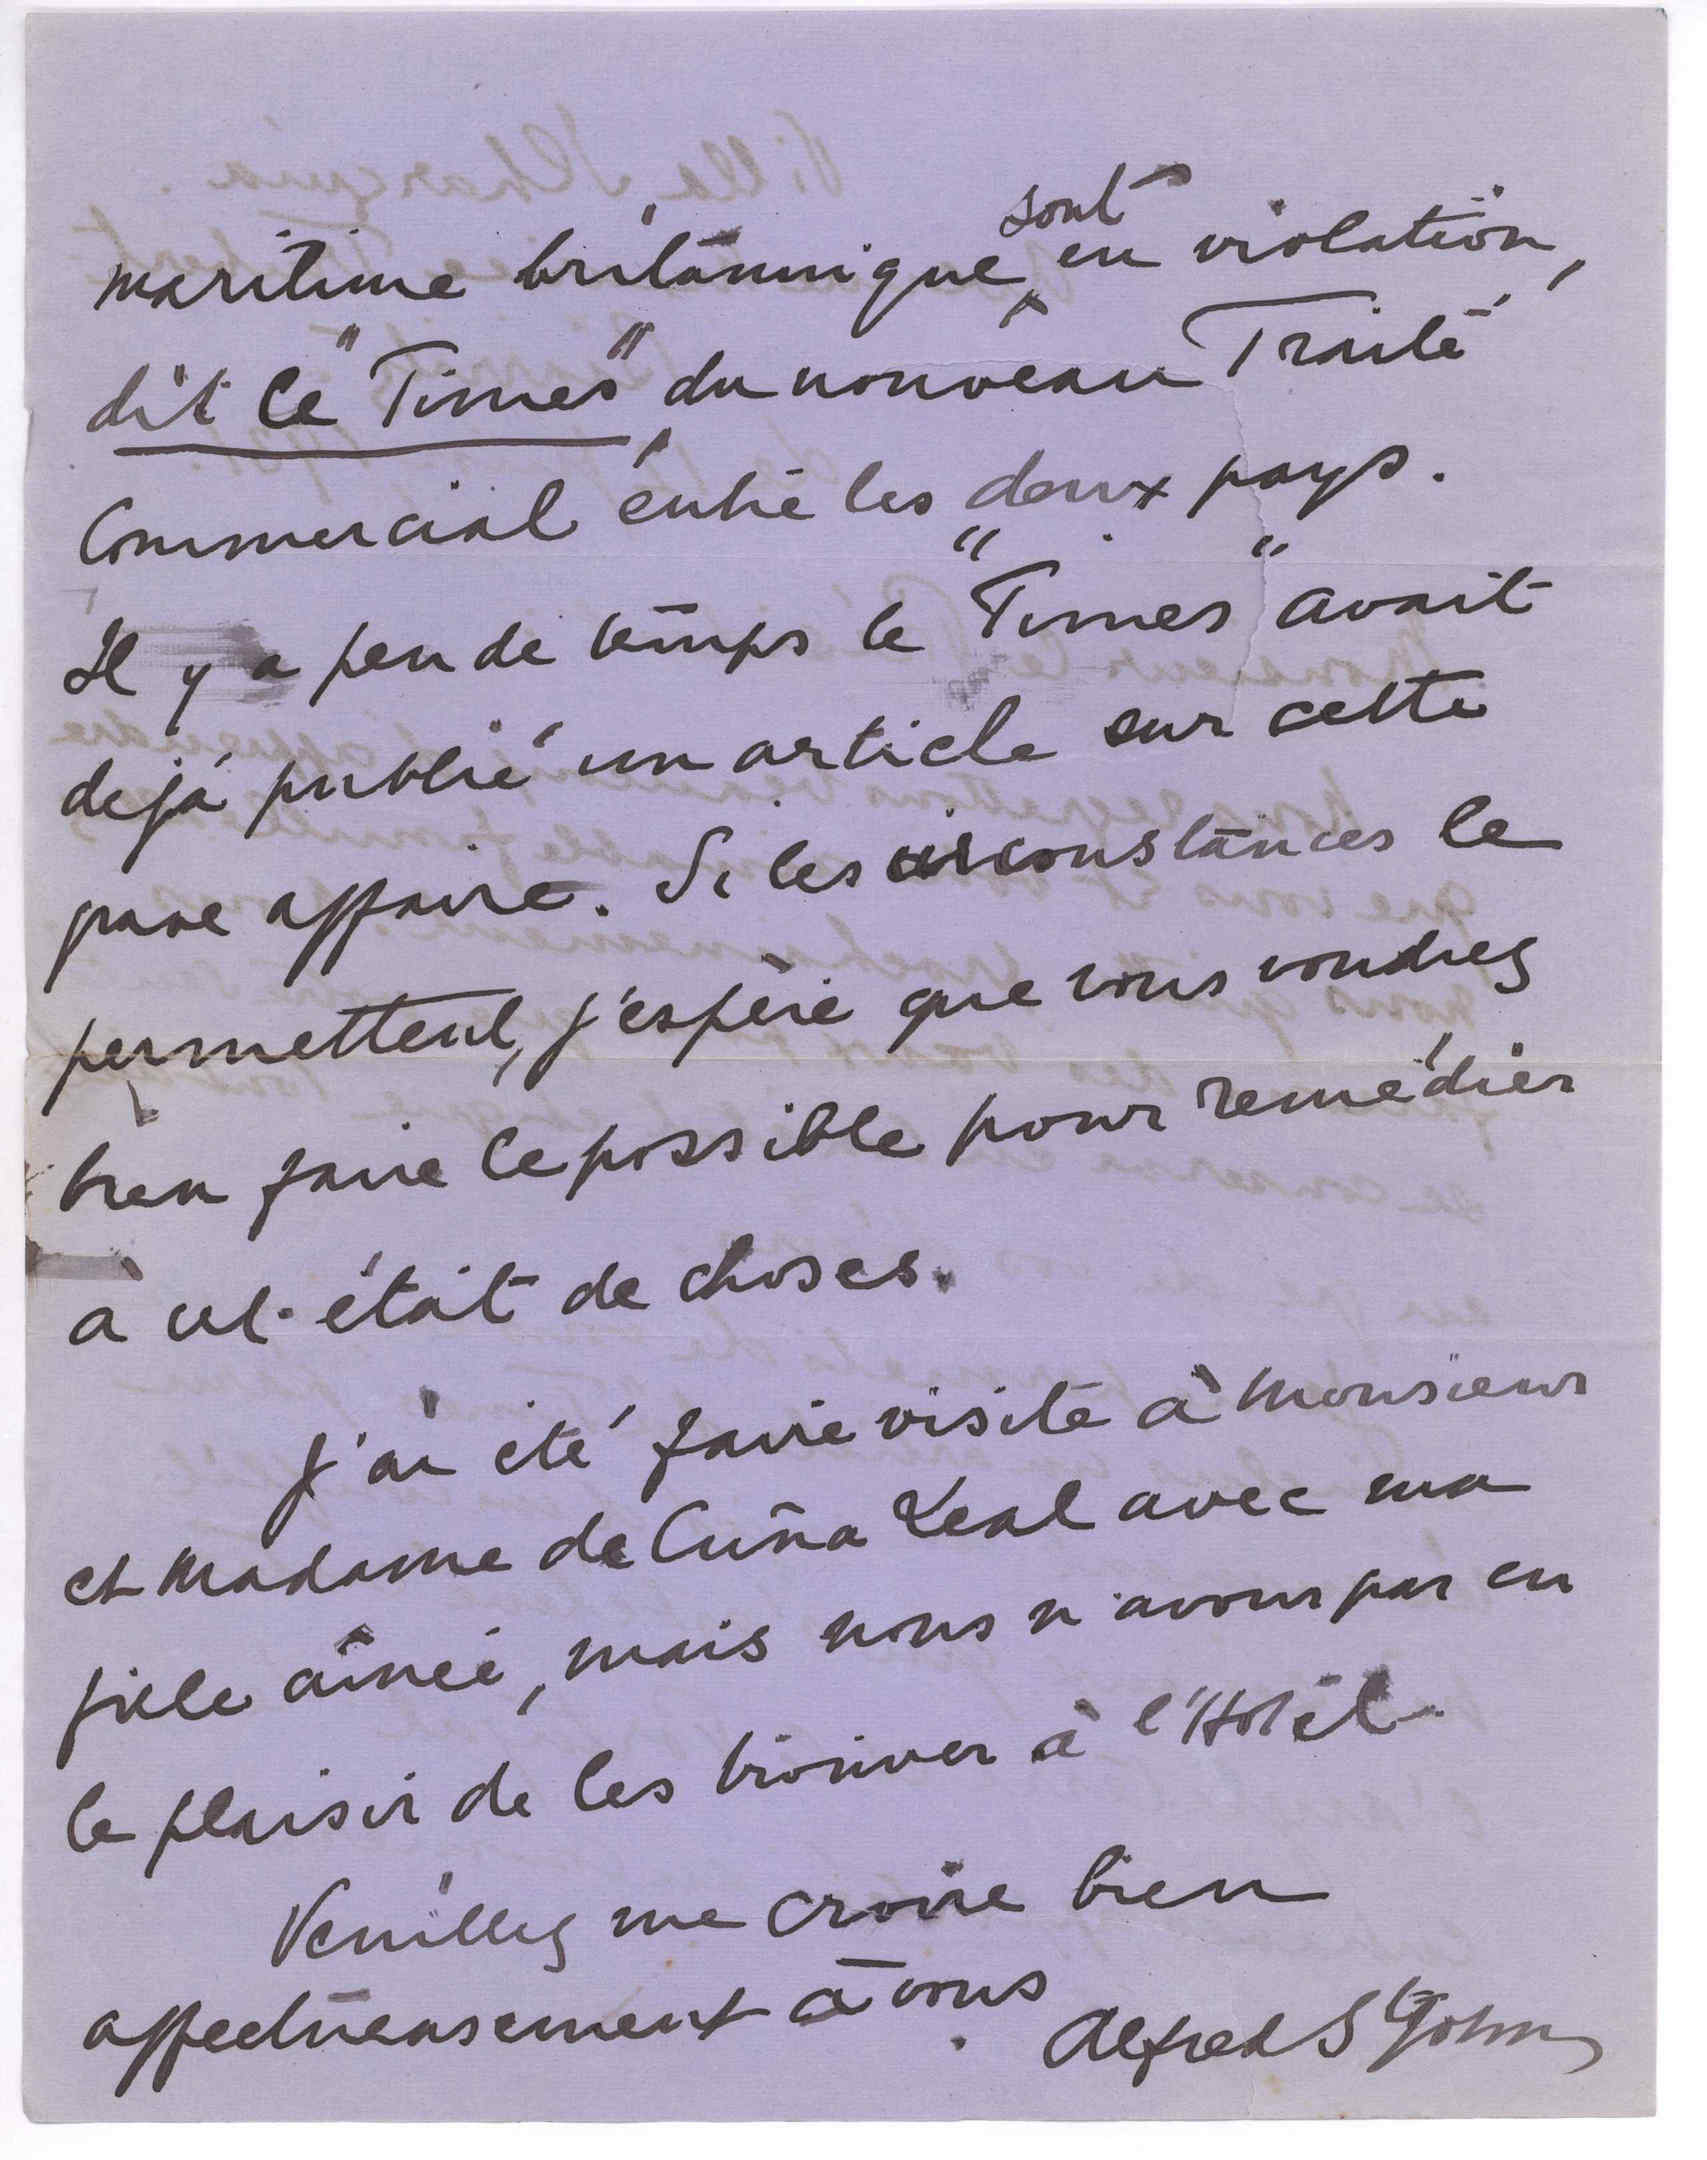 maritime britannique sont en violation,
dit le "Times", du nouveau Traité
Commercial entre les deux pays.
Il y a peu de temps le "Times" avait
dejá publié un article sur cette
grave affaire. Si les circonstances le
permettent, j'espère que vous voudrez
bien faire le possible pour remédier
a cet état de choses.
J'ai été faire visite à Monsieur
et Madame de Cuña Leal avec ma
fille aînée, mais nous n'avons pas eu
le plaisir de les trouver à l'Hotel.
Veuillez me croire bien
affectueusement à vous.
Alfred St John